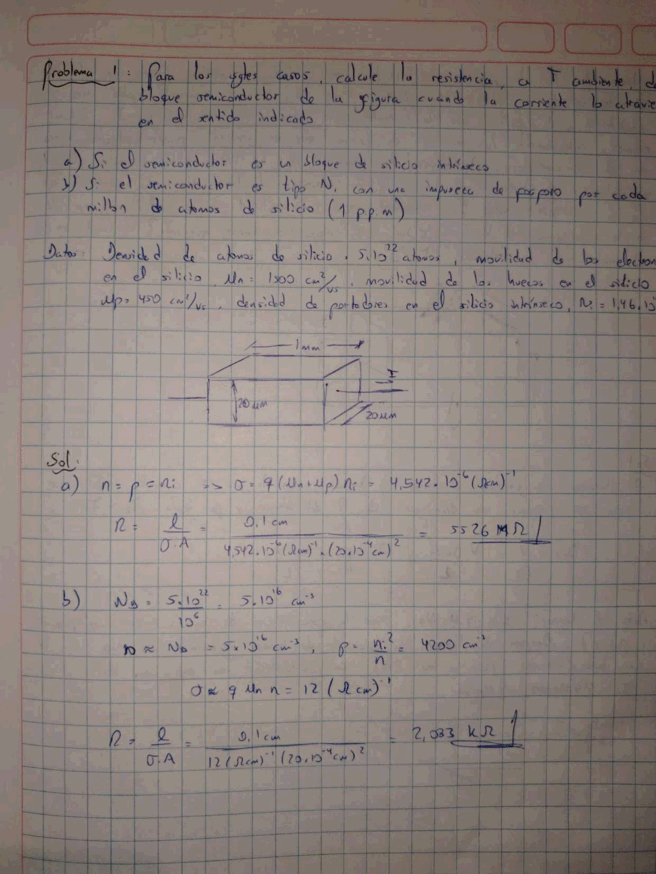 Problema 1: Para los sgtes casos, calcule la resistencia, a T ambiente, de
bloque semiconductor de la figura cuando la corriente lo atravie
en el sentido indicado
a) Si el semiconductor es un bloque de silicio intrínseco
b) Si el semiconductor es tipo N, con una impureza de fosforo por cada
millón de atomos de silicio (1 p.p.m)
Datos: Densidad de atomos de silicio = 5.10²² atomos, movilidad de los electron
en el silicio, Un = 1500 cm²/vs, movilidad de los huecos en el silicio
Up = 450 cm²/vs, densidad de portadores en el silicio intrínseco, Ni = 1,46.10
1mm
I
20µm
20µm
Sol:
a) n = p = ni => σ = q(Un+Up) ni = 4,542.10⁻⁶ (Ωcm)⁻¹
R = l/σ.A = 0,1cm / 4,542.10⁻⁶(Ωcm)⁻¹.(20.10⁻⁴cm)² = 5526 MΩ
b) ND = 5.10²²/10⁶ = 5.10¹⁶ cm⁻³
n ≈ ND = 5.10¹⁶ cm⁻³, p = ni²/n = 4200 cm⁻³
σ ≈ q Un n = 12 (Ωcm)⁻¹
R = l/σ.A = 0,1cm / 12(Ωcm)⁻¹(20.10⁻⁴cm)² = 2,083 kΩ